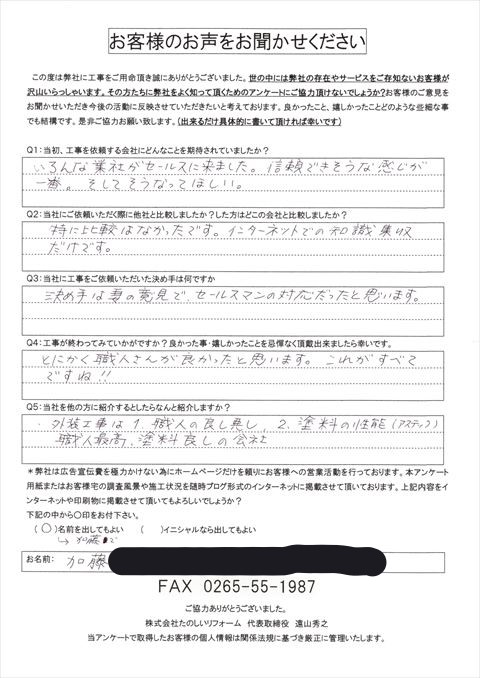 お客様のお声をお聞かせください
この度は弊社に工事をご用命頂き誠にありがとうございました。世の中には弊社の存在やサービスをご存知ないお客様が
沢山いらっしゃいます。その方たちに弊社をよく知って頂くためのアンケートにご協力頂けないでしょうか?お客様のご意見を
お聞かせいただき今後の活動に反映させていただきたいと考えております。良かったこと、嬉しかったことどのような些細な事
でも結構です。是非ご協力お願い致します。(出来るだけ具体的に書いて頂ければ幸いです)
Q1:当初、工事を依頼する会社にどんなことを期待されていましたか?
いろんな業社がセールスに来ました。信頼できそうな感じが
一番。そしてそうなってほしい。
Q2:当社にご依頼いただく際に他社と比較しましたか?した方はどこの会社と比較しましたか?
特に比較はなかったです。インターネットでの知識集収
だけです。
Q3:当社に工事をご依頼いただいた決め手は何ですか
決め手は妻の意見で、セールスマンの対応だったと思います。
Q4:工事が終わってみていかがですか?良かった事・嬉しかったことを忌憚なく頂戴出来ましたら幸いです。
とにかく職人さんが良かったと思います。これがすべて
ですね!!
Q5:当社を他の方に紹介するとしたらなんと紹介しますか?
・外装工事は1.職人の良し悪し、2.塗料の性能(アステック)
職人最高、塗料良しの会社
*弊社は広告宣伝費を極力かけない為にホームページだけを頼りにお客様への営業活動を行っております。本アンケート
用紙またはお客様宅の調査風景や施工状況を随時ブログ形式のインターネットに掲載させて頂いております。上記内容をイ
ンターネットや印刷物に掲載させて頂いてもよろしいでしょうか?
下記の中から○印をお付下さい。
(○)名前を出してもよい ( )イニシャルなら出してもよい
↳加藤で
お名前: 加藤
FAX 0265-55-1987
ご協力ありがとうございました。
株式会社たのしいリフォーム 代表取締役 遠山秀之
当アンケートで取得したお客様の個人情報は関係法規に基づき厳正に管理いたします。